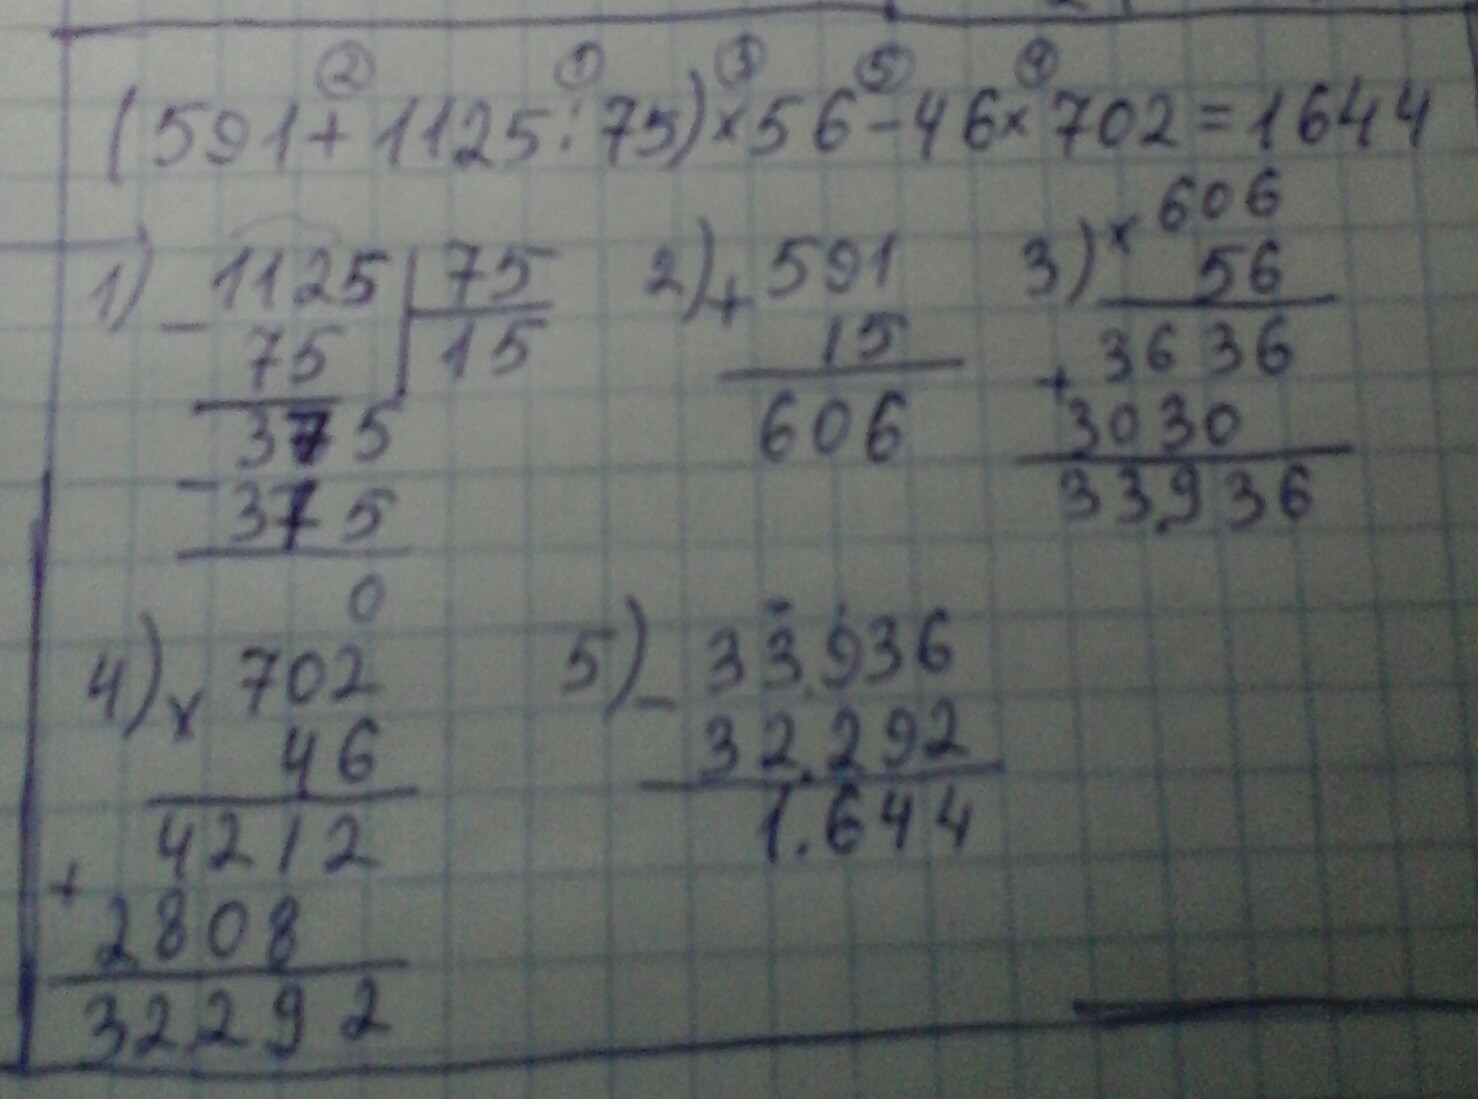 ② ① ③ ⑤ ④
(591+1125:75)×56-46×702=1644
1) 1125 75
- 75 15
375
- 375
0
2) + 591
15
606
3) × 606
56
3636
+ 3030
33.936
4) × 702
46
4212
+ 2808
32292
5) - 33.936
32.292
1.644